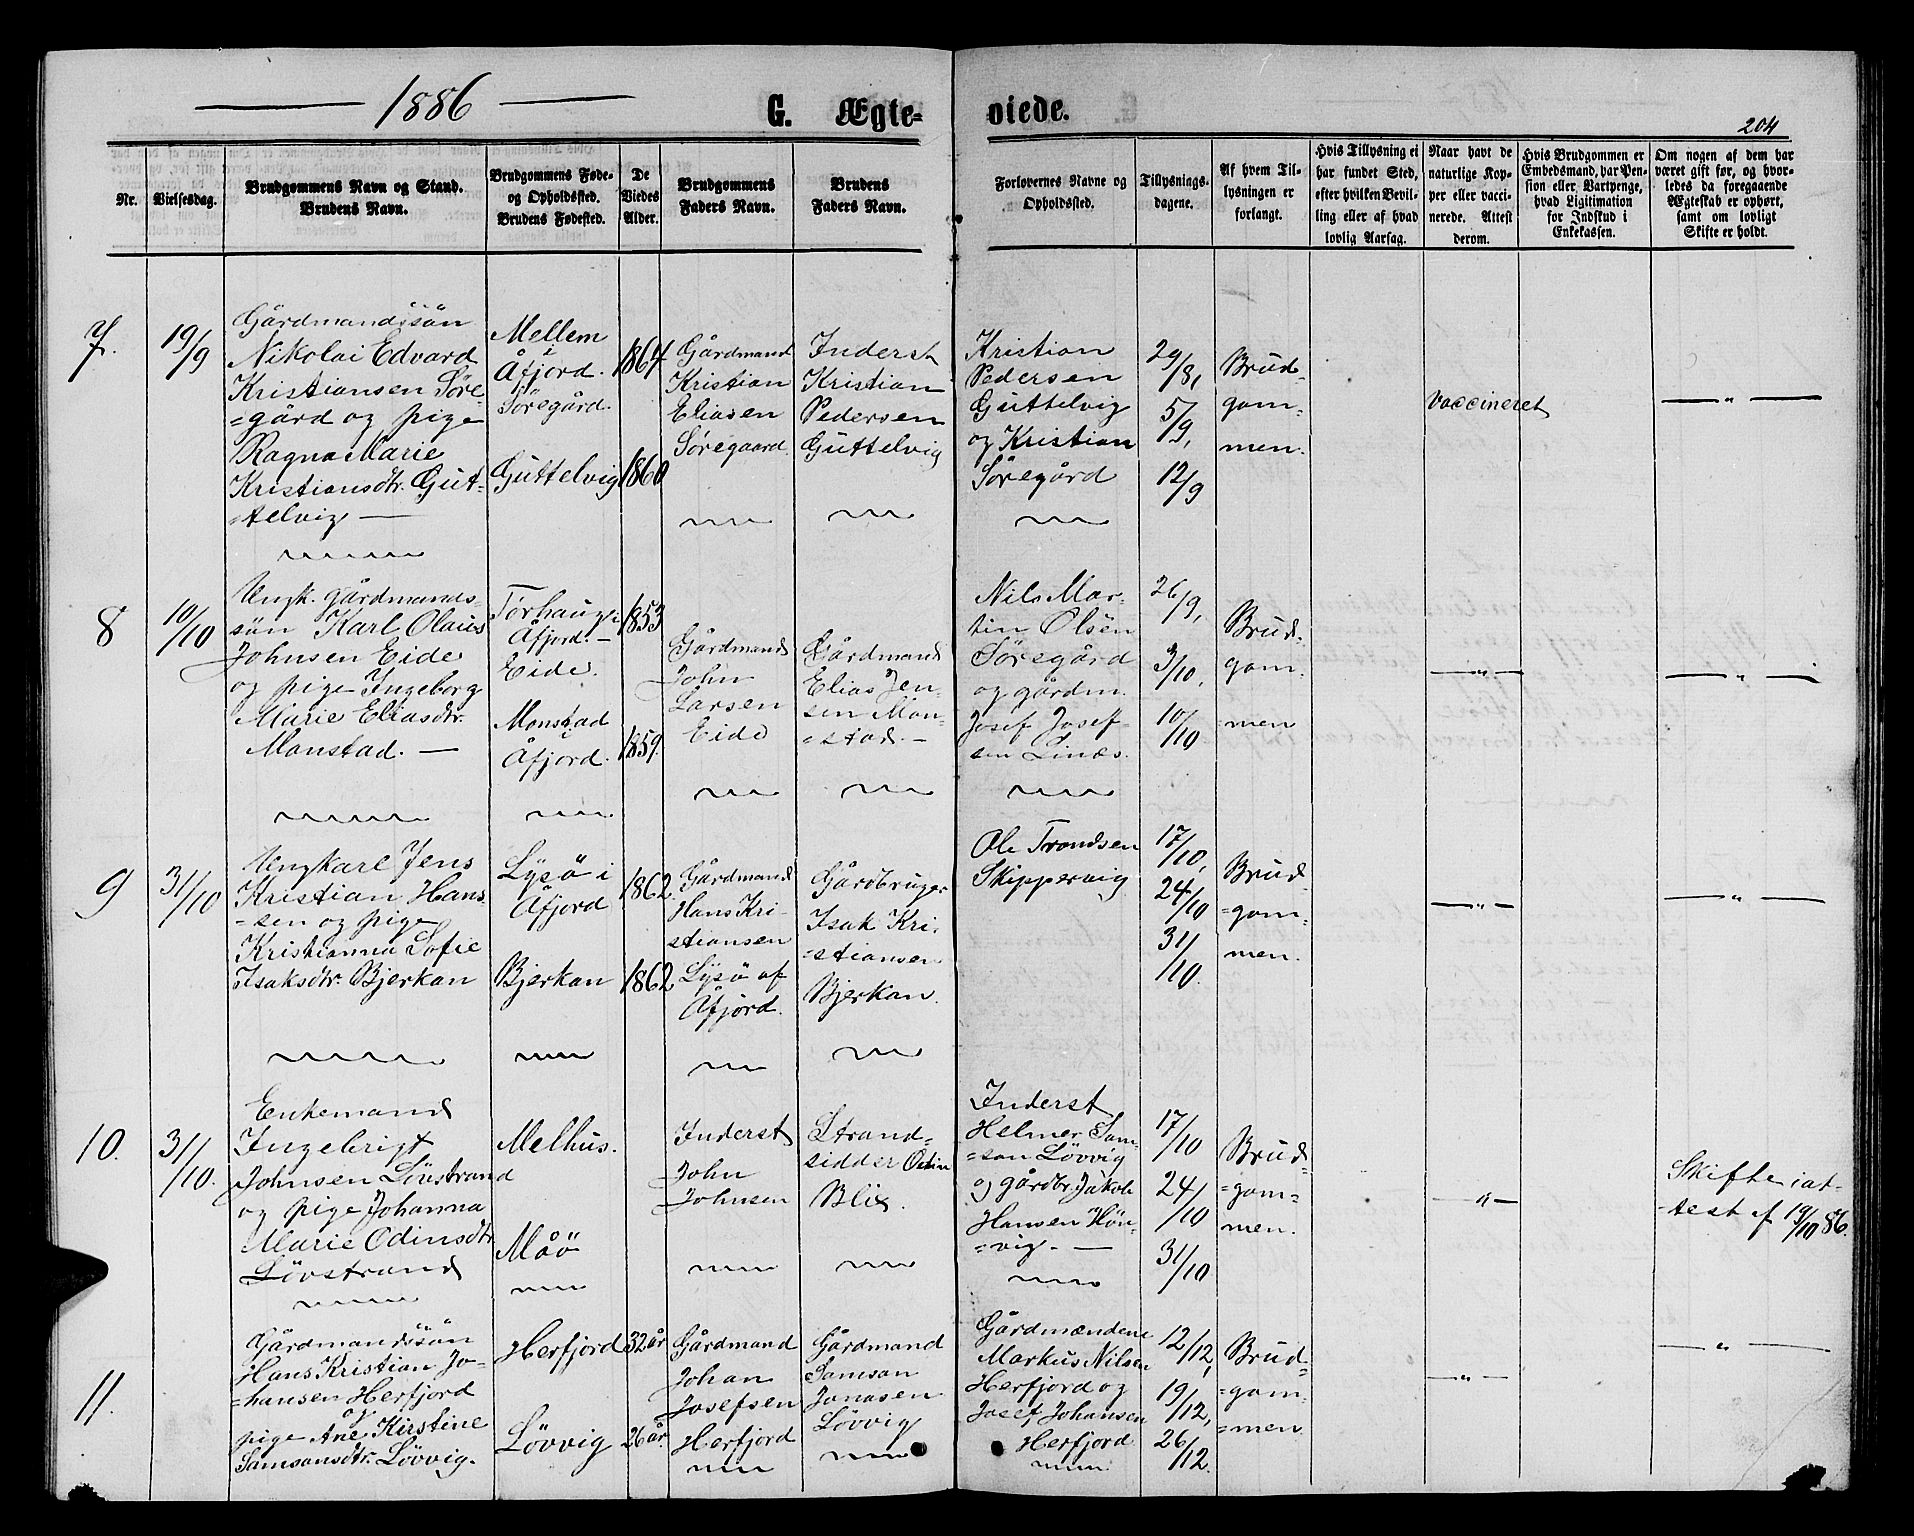 1886
G. Ægte=
viede.
204
Nr.
Vielsesdag.
Brudgommens Navn og Stand.
Brudens Navn.
Brudgommens Føde-
og Opholdssted.
Brudens Fødested.
De
Viedes
Alder.
Brudgommens
Faders Navn.
Brudens
Faders Navn.
Forlovernes Navne og
Opholdssted.
Tillysnings-
dagene.
Af hvem Til-
lysningen er
forlangt.
Hvis Tillysning ei
har fundet Sted,
efter hvilken Bevil-
ling eller af hvad
lovlig Aarsag.
Naar havt de
naturlige Kop-
per eller vacci-
nerede. Attest
derom.
Hvis Brudgommen er
Embedsmand, har Pen-
sion eller, Vartpenge,
hvad Ligitimation
for Indskud i
Enkekassen.
Om nogen af dem har
været gift før, og hvor-
ledes da foregaaende
Ægteskab er ophørt,
samt om lovligt
Skifte er holdt.
7.
19/9
Gårdmandssön
Nikolai Edvard
Kristiansen Søre-
=gård og pige
Ragna Marie
Kristiansdtr. Gut-
=telvig —
Mellem
i
Åfjord.
Søregård.
Guttelvig
1864
1860
Gårdmand
Kristian
Eliasen
Søregaard.
Inderst
Kristian
Pedersen
Guttelvig
Kristian
Pedersen
Guttelvig
og Kristian
Søregård
29/8,
5/9,
12/9
Brud-
gom-
men.
vaccineret
— " —
8
10/10
Ungk. gårdmands-
sön Karl Olaus
Johnsen Eide
og pige Ingeborg
Marie Eliasdtr.
Monstad. —
Tørhaug i
Åfjord. —
Eide.
Monstad
i
Åfjord.
1853
1859.
Gårdmand
John
Larsen
Eide
Gårdmand
Elias Jen-
sen Mon-
=stad. —
Nils Mar-
tin Olsen
Søregård
og gårdm.
Josef Josef-
sen Linæs.
26/9,
3/10,
10/10
Brud-
gom-
=men
— " —
— " —
9
31/10
Ungkarl Jens
Kristian Hans-
=sen og pige
Kristianna Sofie
Isaksdtr. Bjerkan
Lysö i
Åfjord
Bjerkan
1862.
1862
Gårdmand
Hans Kri-
stiansen
Lysö af
Åfjord.
Gårdbruger
Isak Kri-
=stiansen
Bjerkan.
Ole Trondsen
Skippervig
17/10,
24/10
31/10.
Brud-
=gom-
men.
— " —
— " —
10.
31/10.
Enkemand
Ingebrigt
Johnsen Lövstrand
og pige Johanna
Marie Odinsdtr.
Lövstrand
Melhus.
Måö
Inderst
John
Johnsen
Strand-
sidder Odin
Blix.
Inderst
Helmer Sam-
=son Lövvig
og gårdbr. Jakob
Hansen Hön-
=vig. —
17/10
24/10
31/10
Brud-
=gom-
men.
— " —
Skifteiat-
=test af 19/10 86.
11.
Gårdmandssön
Hans Kristian Jo-
=hansen Herfjord
og
pige Ane Kirstine
Samsonsdtr. Lövvig.
Herfjord
Lövvig
32 år
26 år.
Gårdmand
Johan
Josefsen
Herfjord
Gårdmand
Samson
Jonasen
Lövvig
Gårdmændene
Markus Nilsen
Herfjord og
Josef Johansen
Herfjord
12/12,
19/12,
26/12.
Brud-
=gom-
=men
— " —
— " —